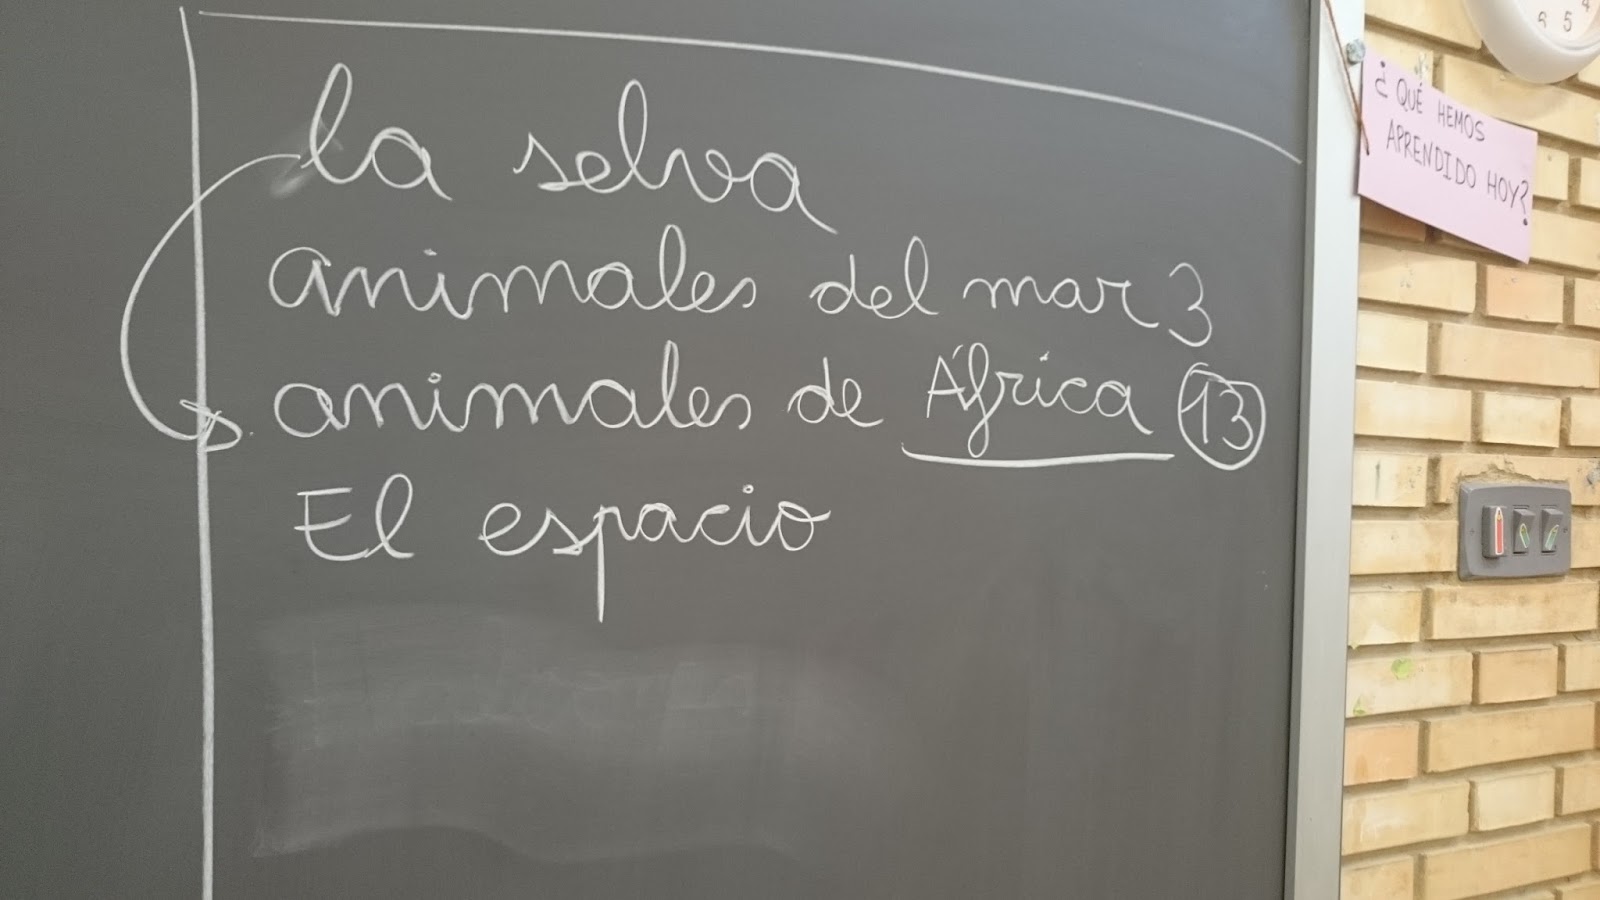 la selva
animales del mar 3
animales de África 13
El espacio
¿QUÉ HEMOS
APRENDIDO HOY?
6 5 4